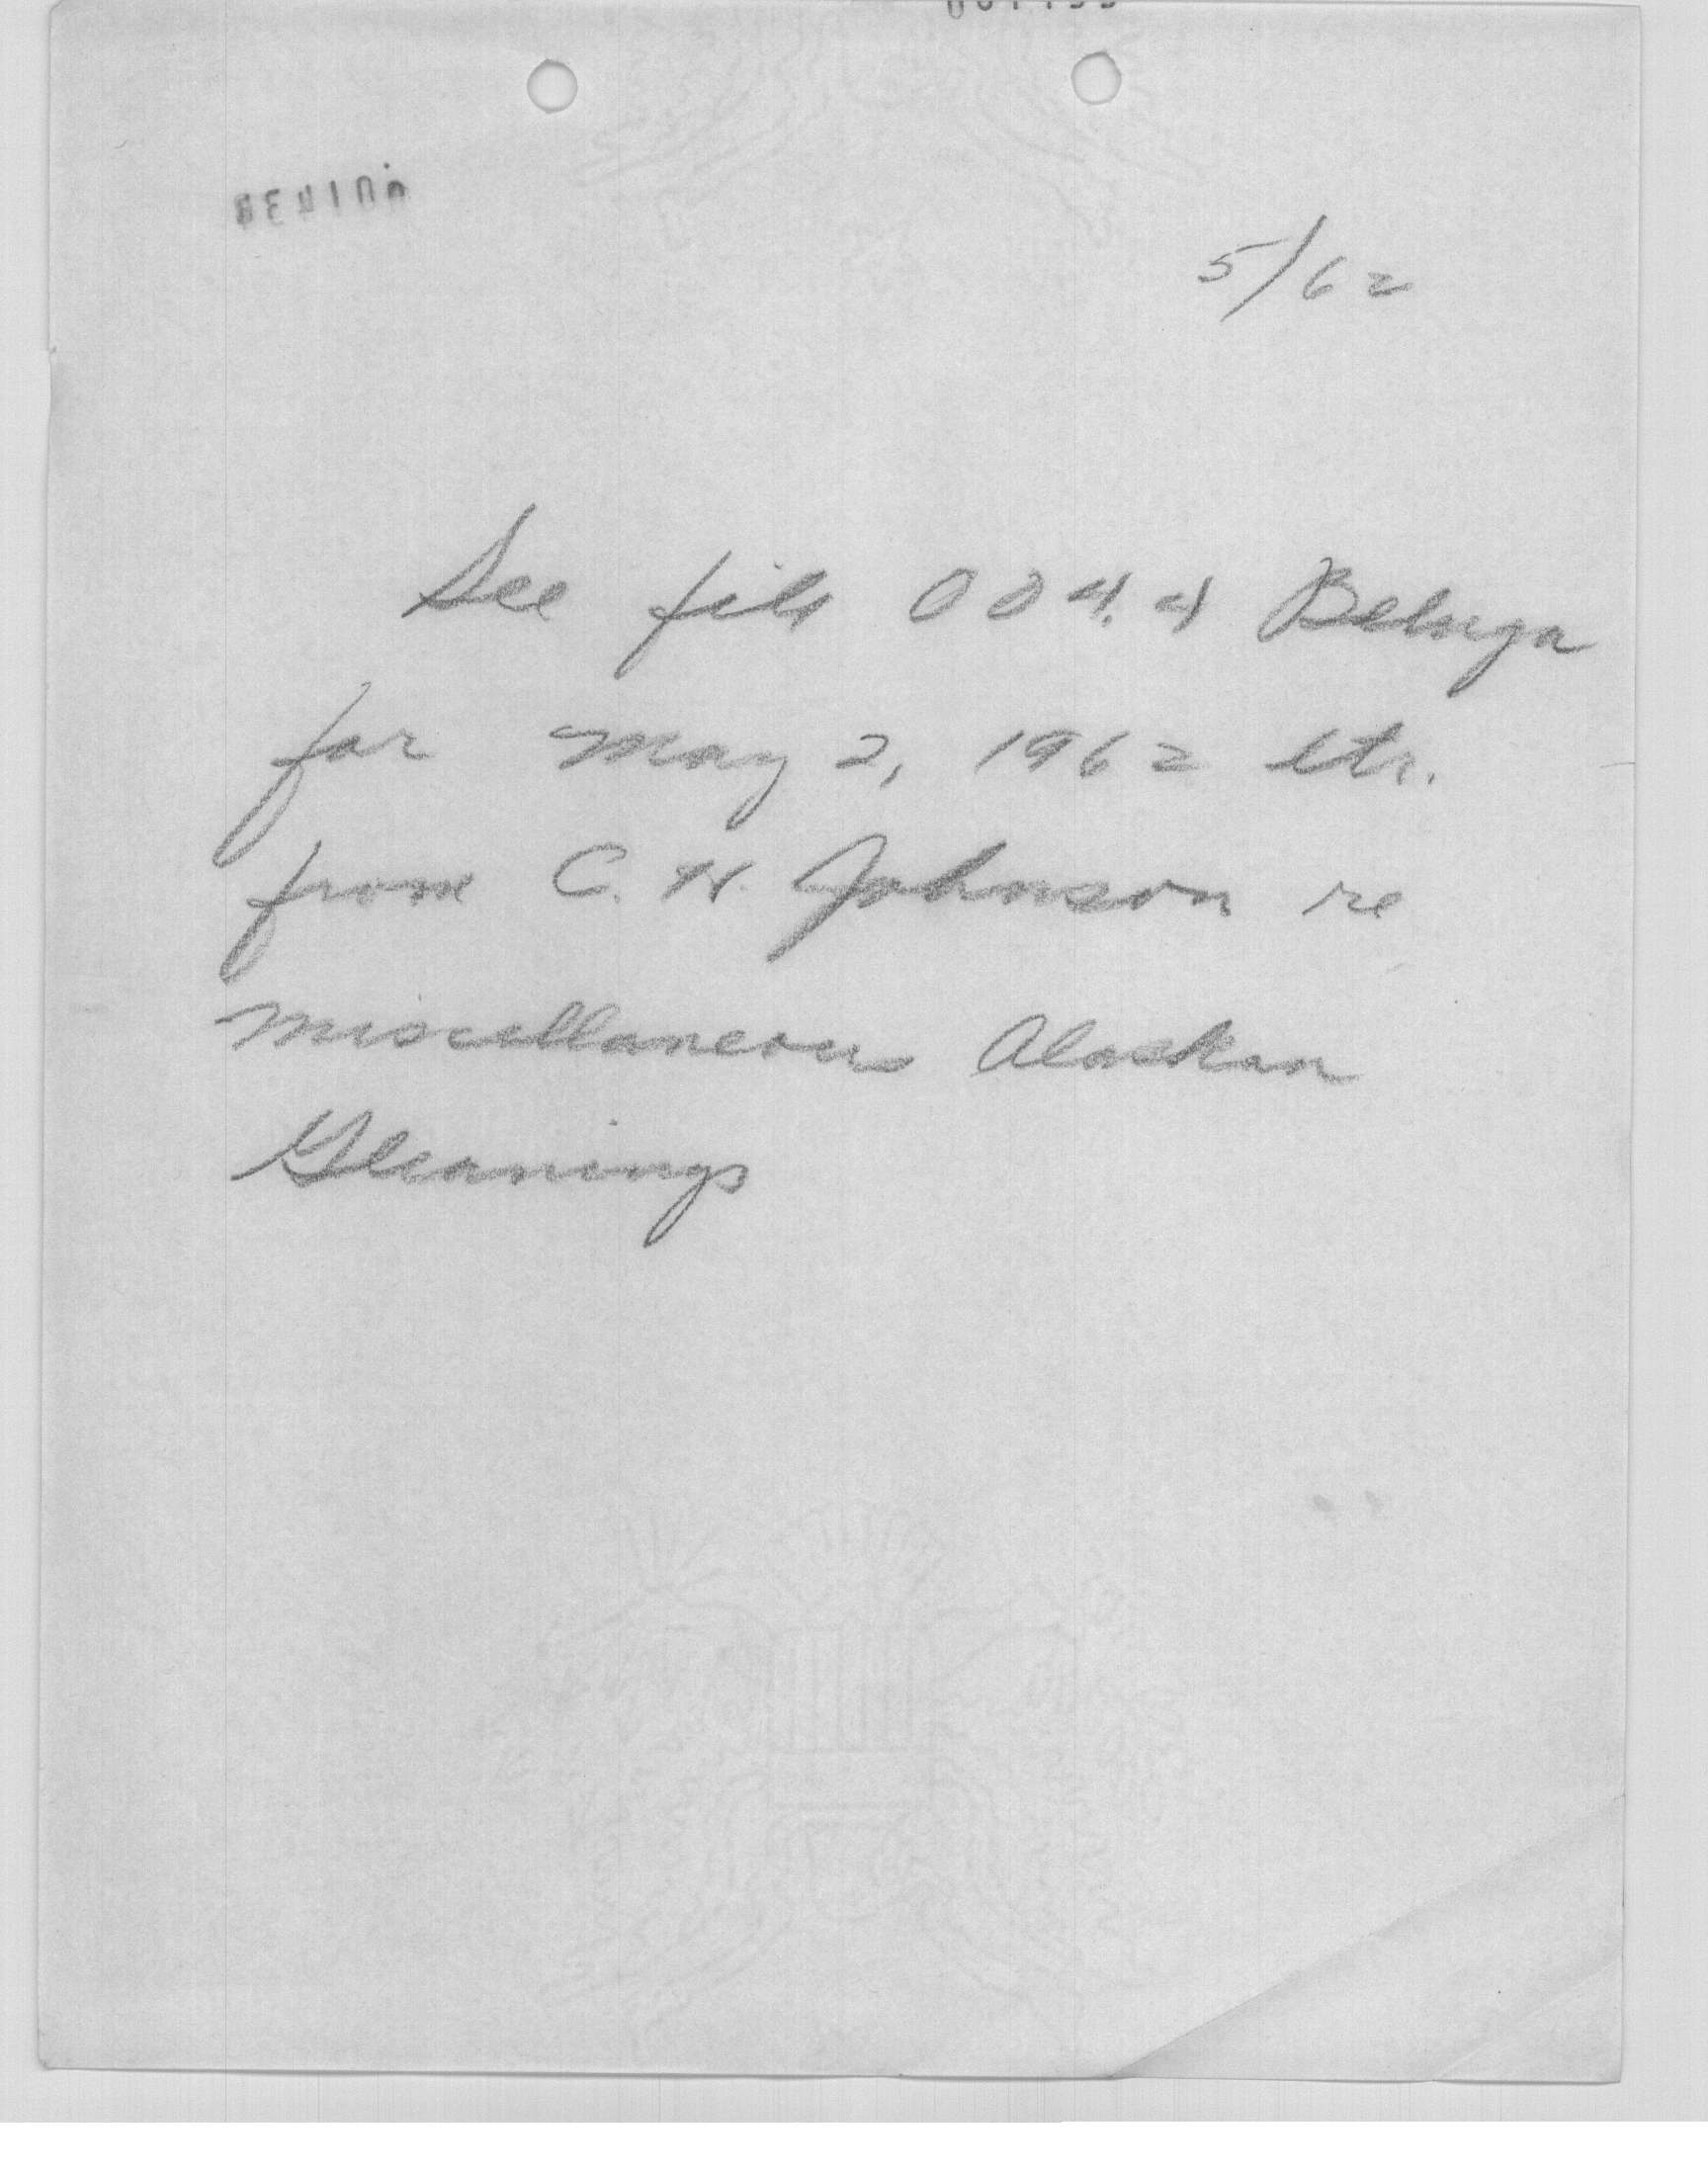 5/62
See file 004.4 Beluga
for May 2, 1962 ltr.
from C. H. Johnson re
Miscellaneous Alaskan
Gleanings